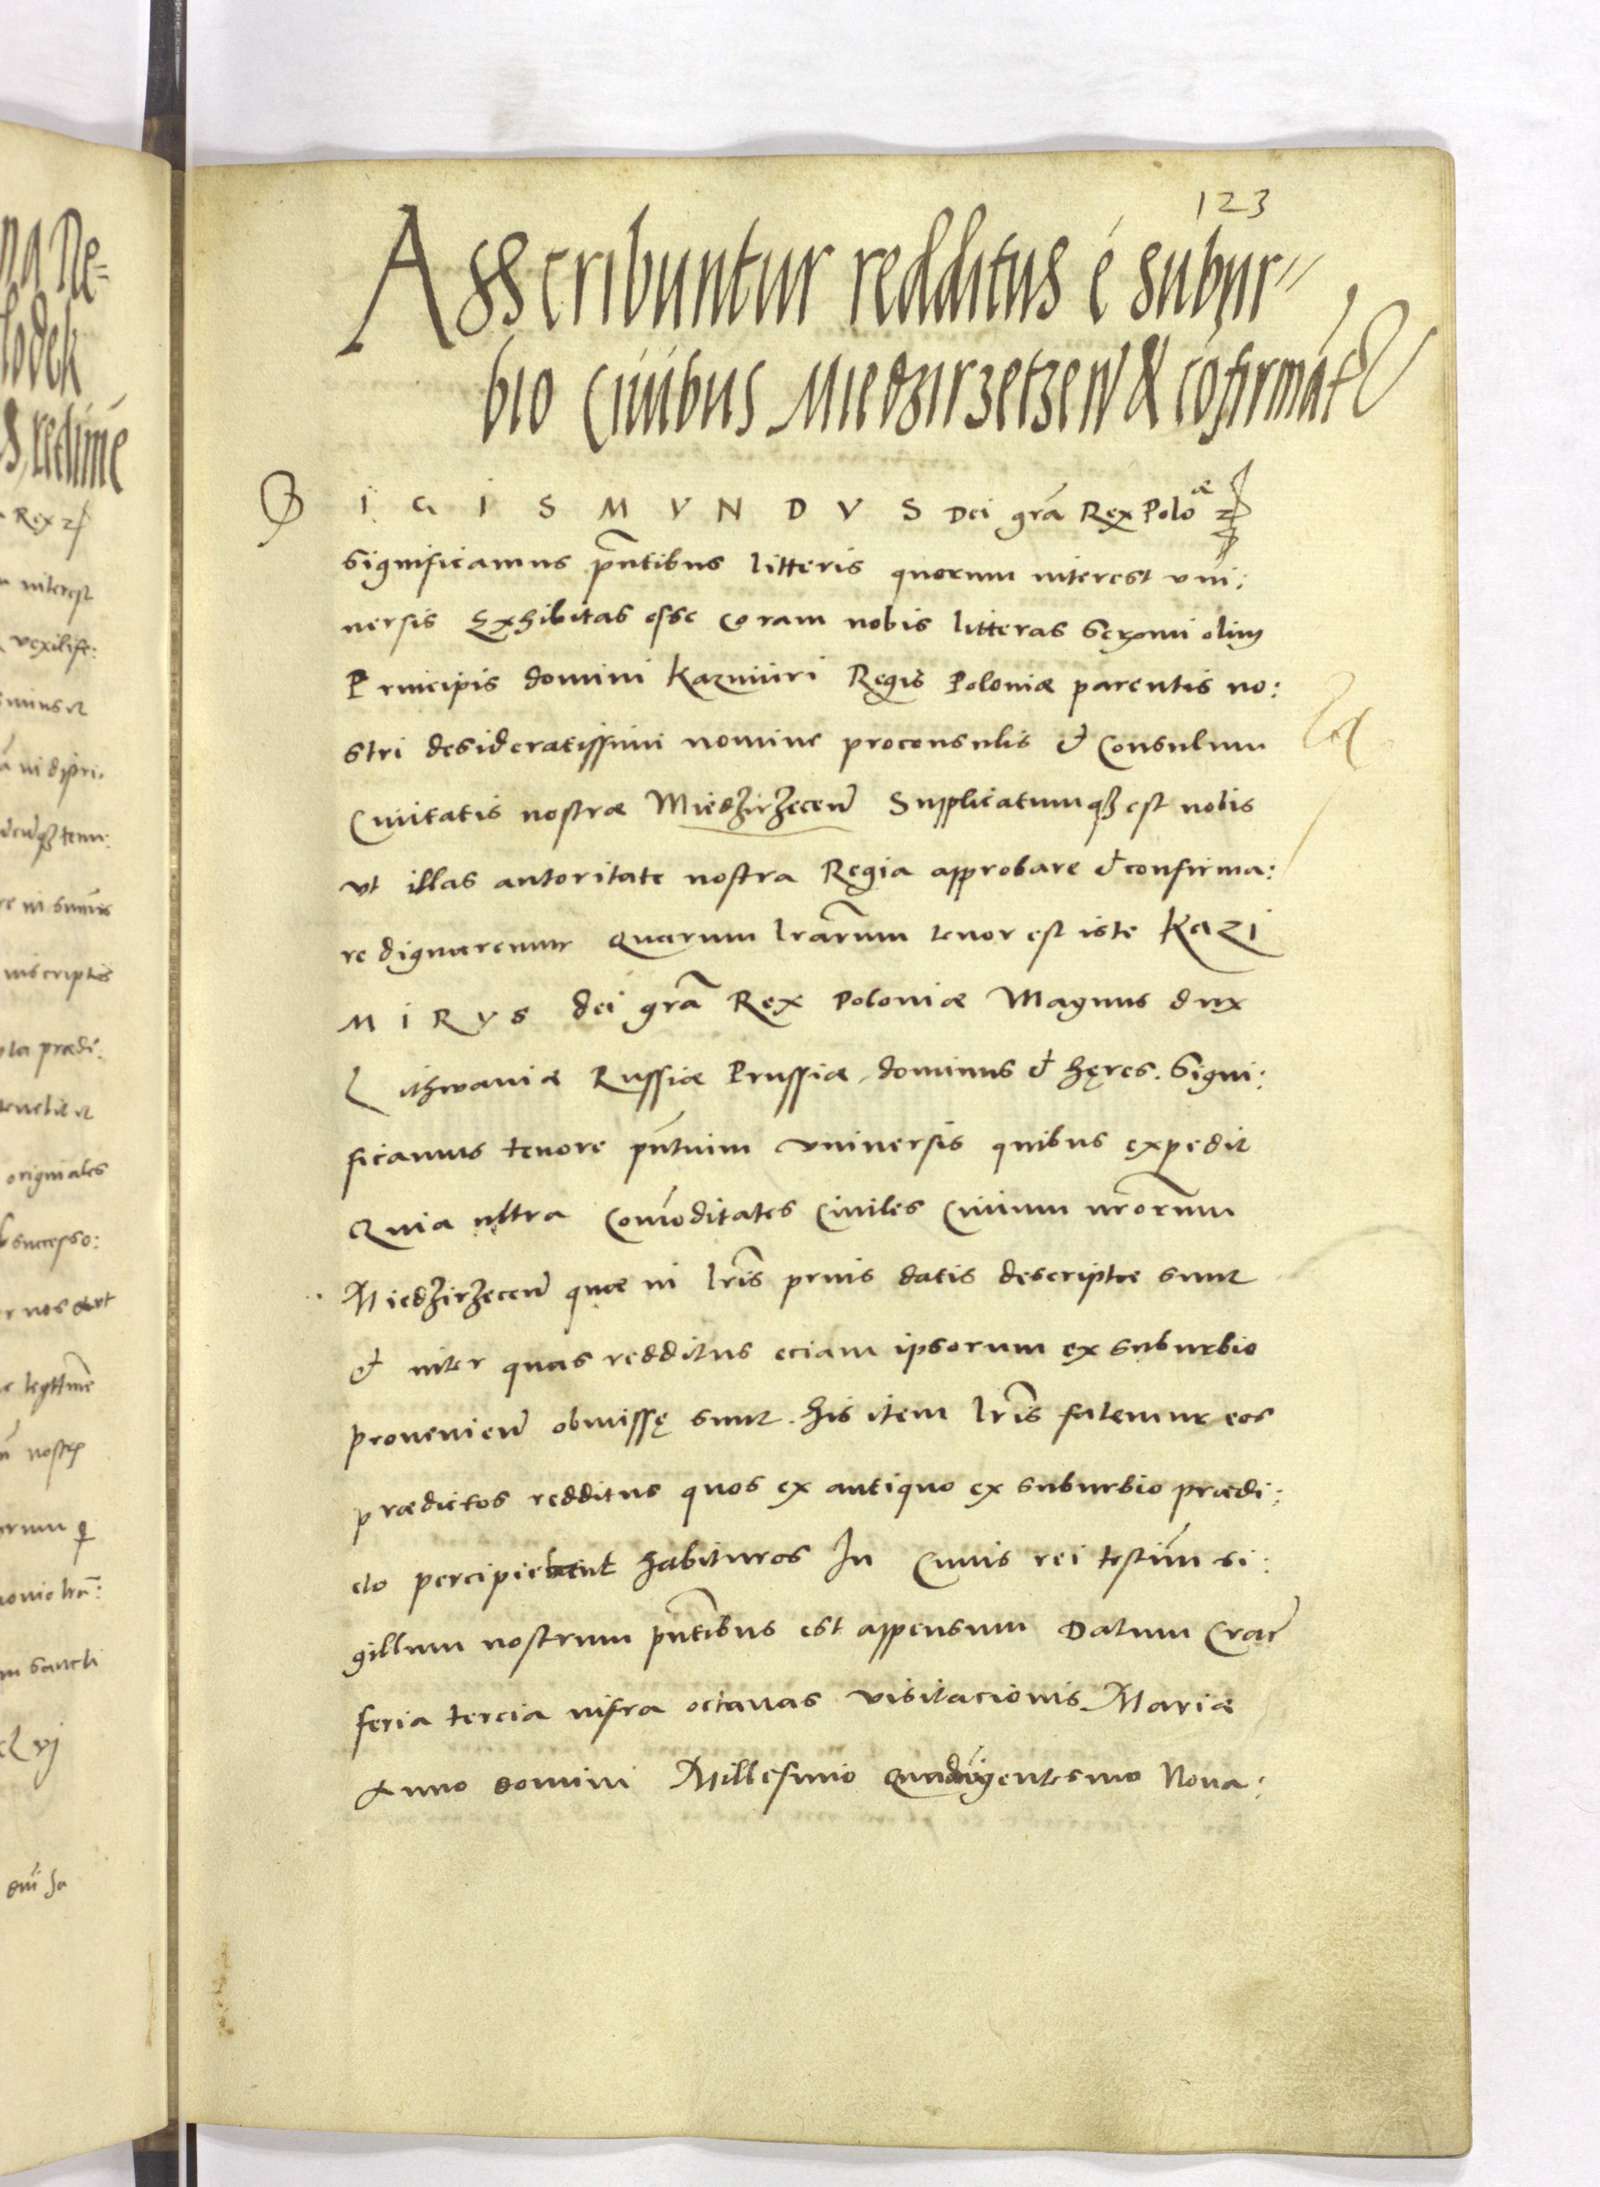 123
Asscribuntur redditus é subur
bio Ciuibus Miedzirzetzen & cōfirmāt
S I G I S M V N D V S Dei grã Rex Poloæ
significamus pñtibus litteris quorum interest vni:
uersis Exhibitas esse coram nobis litteras Serenmi olim
Principis domini Kazimiri Regis Poloniæ parentis no:
stri desideratissimi nomine proconsulis & Consulum
Ciuitatis nostræ Miedzirzecen Supplicatumqz est nobis
vt illas autoritate nostra Regia approbare & confirma:
re dignaremur Quarum lrãrum tenor est iste Kazi
M I R V S dei grã Rex Poloniæ Magnus dux
Lithwaniæ Russiæ Prussiæ dominus & hęres. Signi:
ficamus tenore pñtium vniuersis quibus expedit
Quia ultra Comoditates Ciuiles Ciuium nrorum
Miedzirzecen quæ in lris prius datis descriptæ sunt
& inter quas redditus eciam ipsorum ex suburbio
prouenien obmissę sunt. his item lris fatemur eos
prædictos redditus quos ex antiquo ex suburbio prædi:
cto percipiebant habituros In Cuius rei testim si:
gillum nostrum pñtibus est appensum Datum Crac
feria tercia infra octauas visitacionis Mariæ
Anno domini Millesimo Quadringentesimo Nona:
na Ne=
lodek
redime
Rex
interest
vexilife:
inscriptis
prædi:
originales
successo:
sancti